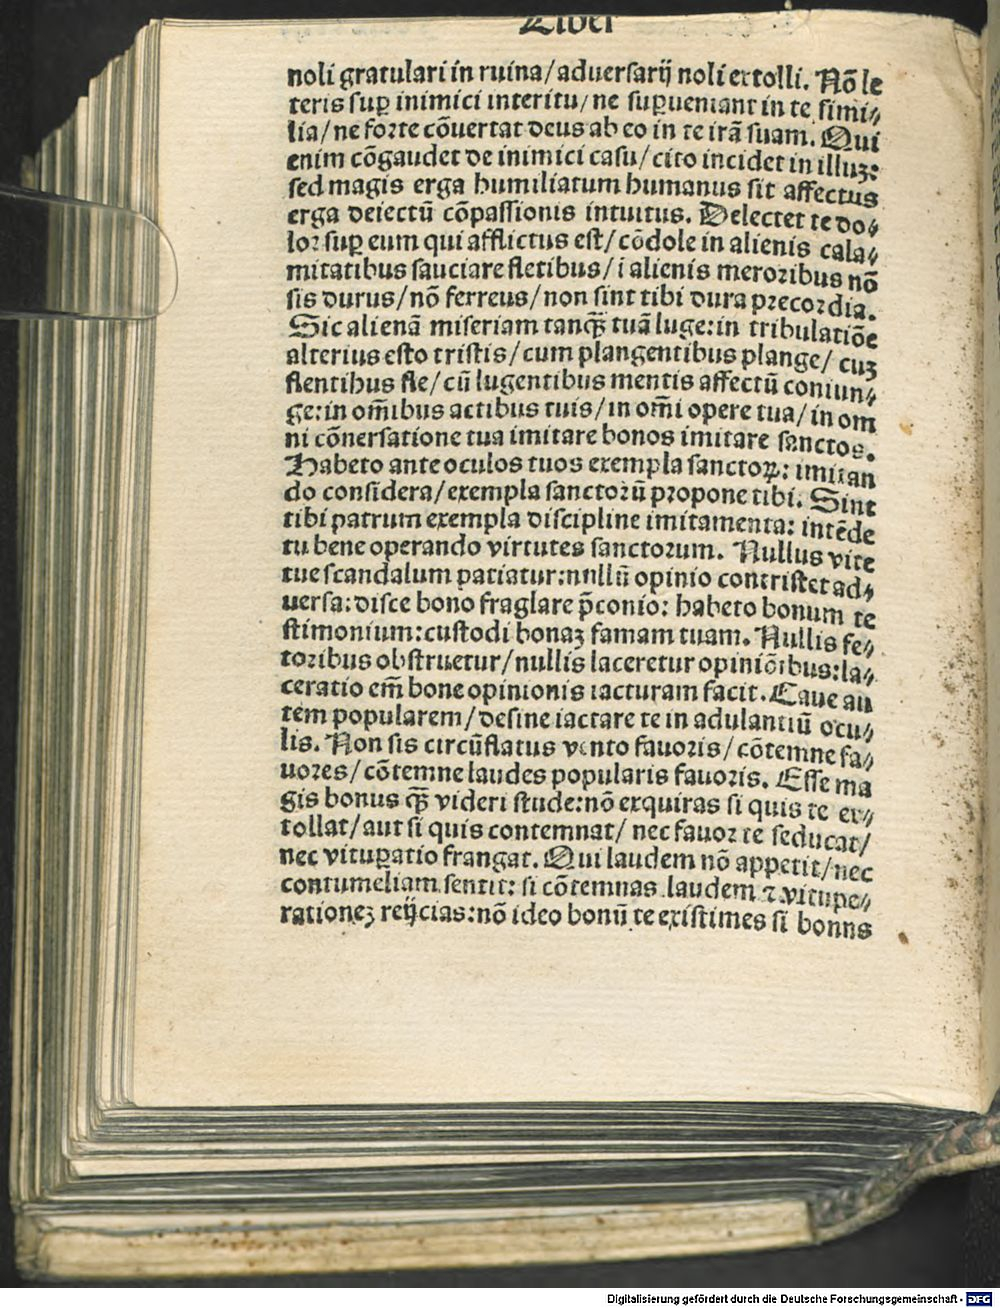 Liber
noli gratulari in ruina/aduersarij noli extolli. Nõ le
teris suꝑ inimici interitu/ne suꝑueniant in te simi⸗
lia/ne forte cõuertat deus ab eo in te irã suam. Qui
enim cõgaudet de inimici casu/cito incidet in illuꝫ:
sed magis erga humiliatum humanus sit affectus
erga deiectũ cõpassionis intuitus. Delectet te do⸗
lor suꝑ eum qui afflictus est/cõdole in alienis cala⸗
mitatibus sauciare fletibus/i alienis meroribus nõ
sis durus/nõ ferreus/non sint tibi dura precordia.
Sic alienã miseriam tanq̃ꝫ tuã luge:in tribulatiõe
alterius esto tristis/cum plangentibus plange/cuꝫ
flentibus fle/cũ lugentibus mentis affectũ coniun⸗
ge:in om̃ibus actibus tuis/in om̃i opere tua/in om
ni cõnersatione tua imitare bonos imitare sanctos.
Habeto ante oculos tuos exempla sanctoꝝ: imitan
do considera/exempla sanctorũ propone tibi. Sint
tibi patrum exempla discipline imitamenta: intẽde
tu bene operando virtutes sanctorum. Nullus vite
tue scandalum patiatur:nnllũ opinio contristet ad⸗
uersa:disce bono fraglare p̃conio: habeto bonum te
stimonium:custodi bonaꝫ famam tuam. Nullis fe⸗
toribus obstruetur/nullis laceretur opiniõibus:la⸗
ceratio em̃ bone opinionis iacturam facit. Caue au
tem popularem/desine iactare te in adulantiũ ocu⸗
lis. Non sis circũflatus vento fauoris/cõtemne fa⸗
uores/cõtemne laudes popularis fauoris. Esse ma
gis bonus q̃ꝫ videri stude:nõ exquiras si quis te ex⸗
tollat/aut si quis contemnat/nec fauor te seducat/
nec vituꝑatio frangat. Qui laudem nõ appetit/nec
contumeliam sentit: si cõtemnas laudem ⁊ vitupe⸗
rationeꝫ reijcias:nõ ideo bonũ te existimes si bonns
Digitalisierung gefördert durch die Deutsche Forschungsgemeinschaft - DFG